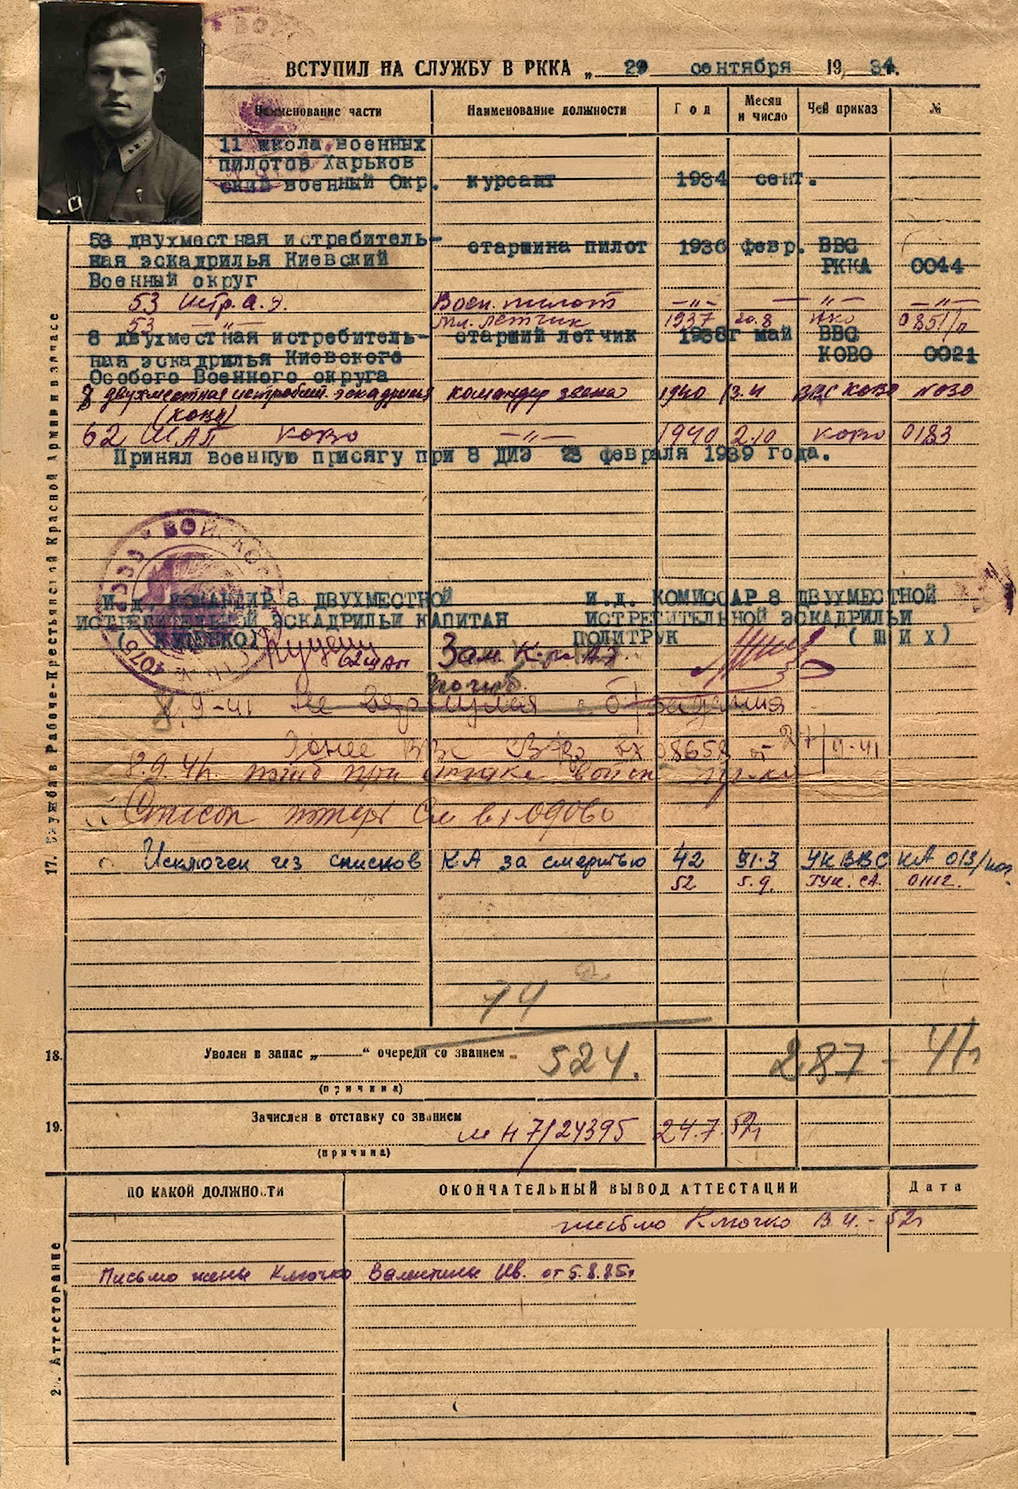 ВСТУПИЛ НА СЛУЖБУ В РККА „ 29 сентября 19 34.
Наименование части Наименование должности Год Месяц и число Чей приказ №
11 школа военных
пилотов Харьков
ский военный Окр. курсант 1934 сент.
53 двухместная истребитель-
ная эскадрилья Киевский
Военный округ
старшина пилот 1936 февр. ВВС
РККА 0044
53 истр.а.э. Воен. пилот —"— —"— —"—
53 —"— мл. летчик 1937 20.8 НКО
8 двухместная истребитель-
ная эскадрилья Киевского
Особого Военного округа
старший летчик 1938г май ВВС
КОВО 0021
8 двухместная истребит. эскадрилия командир звена 1940 13.4 ВВС КОВО №030
(КОВО)
62 ШАП КОВО —"— 1940 2.10 КОВО 0183
Принял военную присягу при 8 ДИЭ 23 февраля 1939 года.
И.Д. КОМАНДИР 8 ДВУХМЕСТНОЙ
ИСТРЕБИТЕЛЬНОЙ ЭСКАДРИЛЬИ КАПИТАН
И.Д. КОМИССАР 8 ДВУХМЕСТНОЙ
ИСТРЕБИТЕЛЬНОЙ ЭСКАДРИЛЬИ
ПОЛИТРУК (ШИХ)
62 ШАП Зам. К-ра АЭ
погиб
8.9-41 Не вернулся с б/задания
8.9.41г. погиб при атаке войск
Список потерь
Исключен из списков КА за смертью 42 31.3 УК ВВС КА 013/
52 5.9. ГУК СА. 01112.
17. Служба в Рабоче-Крестьянской Красной Армии и в запасе
74
18. Уволен в запас „——“ очереди со званием
(причина)
524. 287 - 41г
19. Зачислен в отставку со званием
(причина)
м Н 7/24395 24.7 52г
ПО КАКОЙ ДОЛЖНОСТИ ОКОНЧАТЕЛЬНЫЙ ВЫВОД АТТЕСТАЦИИ Дата
письмо Ключко В.И. - 52г
Письмо жены Ключко Валентины Ив. от 5.8.85г
Аттестование